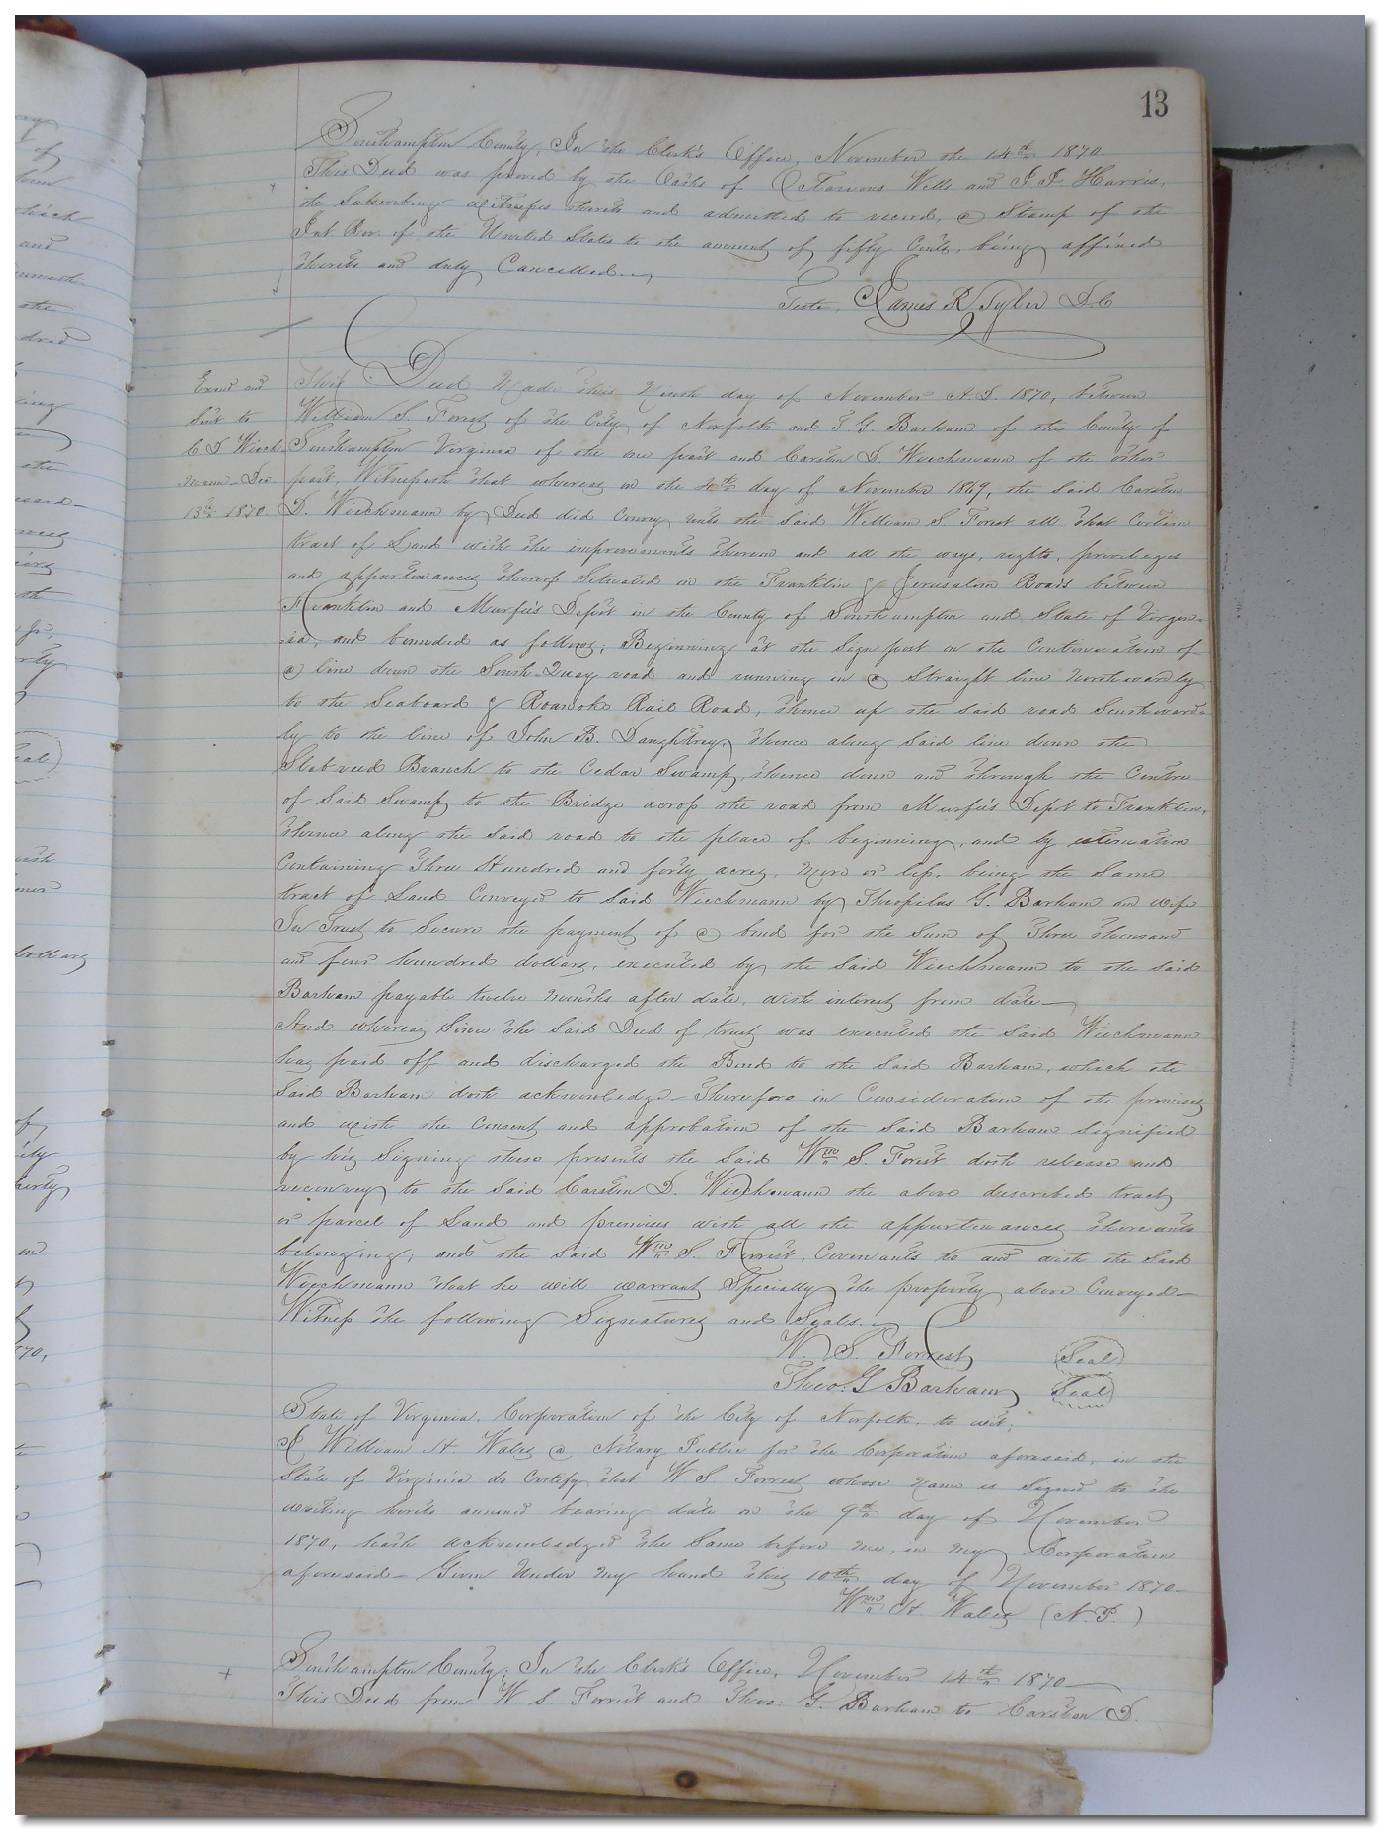 13
Southampton County, In the Clerk's Office, November the 14th 1870
This Deed was proved by the Oaths of Octavious Wells and J. J. Harris,
the Subscribing witnesses thereto and admitted to record, a Stamp of the
Int Rev. of the United States to the amount of fifty Cents, being affixed
thereto and duly Cancelled.
Teste, James R Tyler D.C
Exmd and
Sent to
C D Wiech
mann Dec
13th 1870
This Deed Made this Ninth day of November A.D. 1870, between
William S. Forrest of the City of Norfolk and T. G. Barham of the County of
Southampton Virginia of the one part and Carsten D. Wiechmann of the other
part, Witnesseth that whereas on the day of November 1869, the said Carsten
D. Wiechmann by Deed did Convey unto the said William S Forrest all that Certain
tract of Land with the improvements thereon and all the ways, rights, privileges
and appurtenances thereof Situated on the Franklin & Jerusalem Roads between
Franklin and Murfee's Depot in the County of Southampton and State of Virgin=
=ia, and bounded as follows; Beginning at the Sign post in the Continuation of
a line down the South-Quay road and running in a Straight line Northwardly
to the Seaboard & Roanoke Rail Road, thence up the said road Southward=
ly to the line of John B. Daughtrey, thence along said line down the
Branch to the Cedar Swamp, thence down and through the Centre
of Said Swamp to the Bridge across the road from Murfee's Depot to Franklin,
thence along the Said road to the place of beginning, and by estimation
Containing Three Hundred and forty acres, More or less, being the Same
tract of Land Conveyed to Said Wiechmann by Theopilus G. Barham and wife
In Trust to Secure the payment of a bond for the Sum of Three thousand
and four hundred dollars, executed by the Said Wiechmann to the said
Barham payable twelve months after date, with interest from date—
And whereas Since the Said Deed of trust was executed the Said Wiechmann
has paid off and discharged the Bond to the Said Barham, which the
Said Barham doth acknowledge— Therefore in Consideration of the premises
and with the Consent and approbation of the Said Barham Signified
by his Signing these presents the Said Wm S. Forrest doth release and
reconvey to the Said Carsten D. Wiechmann the above described tract
or parcel of Land and premises with all the appurtenances thereunto
belonging; and the Said Wm S. Forrest, Covenants to and with the Said
Wiechmann that he will warrant Specially the property above Conveyed—
Witness the following Signatures and Seals.
W. S. Forrest (Seal)
Theo: G Barham (Seal)
State of Virginia, Corporation of the City of Norfolk, to wit;
I William H Wales a Notary Public for the Corporation aforesaid, in the
State of Virginia do Certify that W S Forrest whose Name is Signed to the
writing hereto annexed bearing date on the 9th day of November
1870, hath acknowledged the Same before me, in my Corporation
aforesaid— Given Under my hand this 10th day of November 1870—
Wm H Wales (N.P.)
+
Southampton County; In the Clerk's Office, November 14th 1870—
This Deed from W S Forrest and Theo: G. Barham to Carsten D.